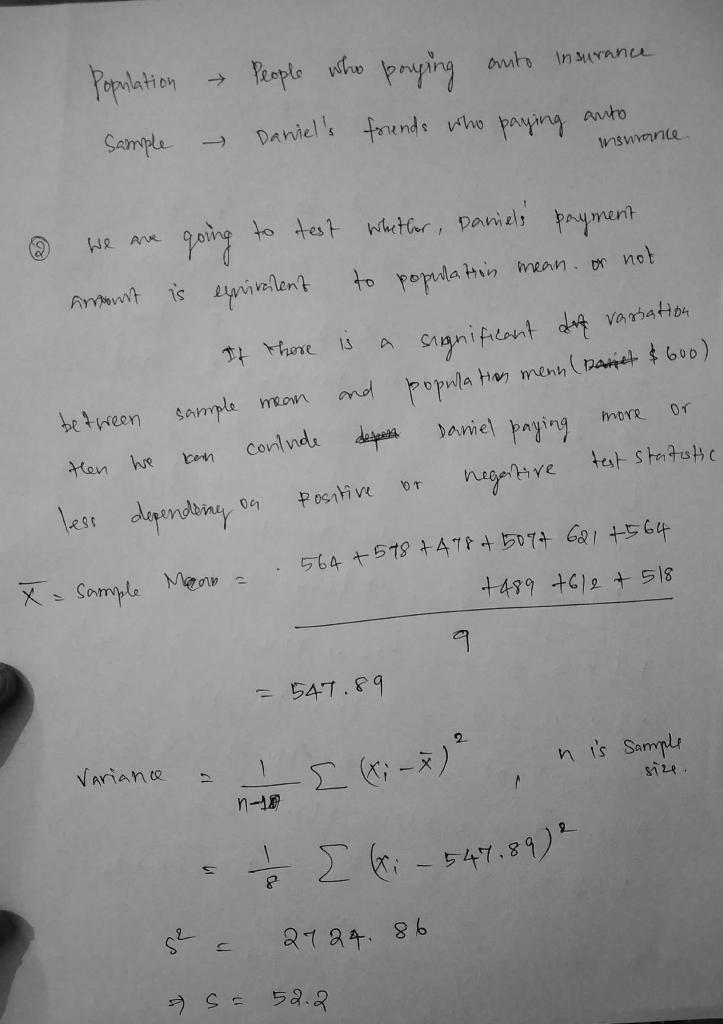 Population → People who paying auto insurance
Sample → Daniel's friends who paying auto insurance.
② We are going to test whether, Daniels payment
amount is equivalent to population mean. or not
If there is a significant variation
between sample mean and population mean ( $600)
then we can conlude Daniel paying more or
less depending on Positive or negative test statistic
X̄ = Sample Mean = 564 + 578 + 478 + 507 + 621 + 564
+489 +612 + 518
9
= 547.89
Variance = 1/(n-1) Σ (xᵢ - x̄)² , n is Sample size.
= 1/8 Σ (xᵢ - 547.89)²
s² = 2724.86
⇒ s = 52.2